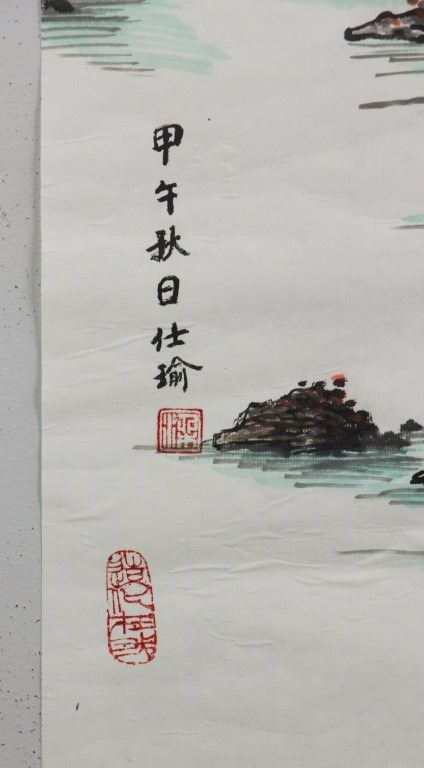 甲午秋日仕瑜